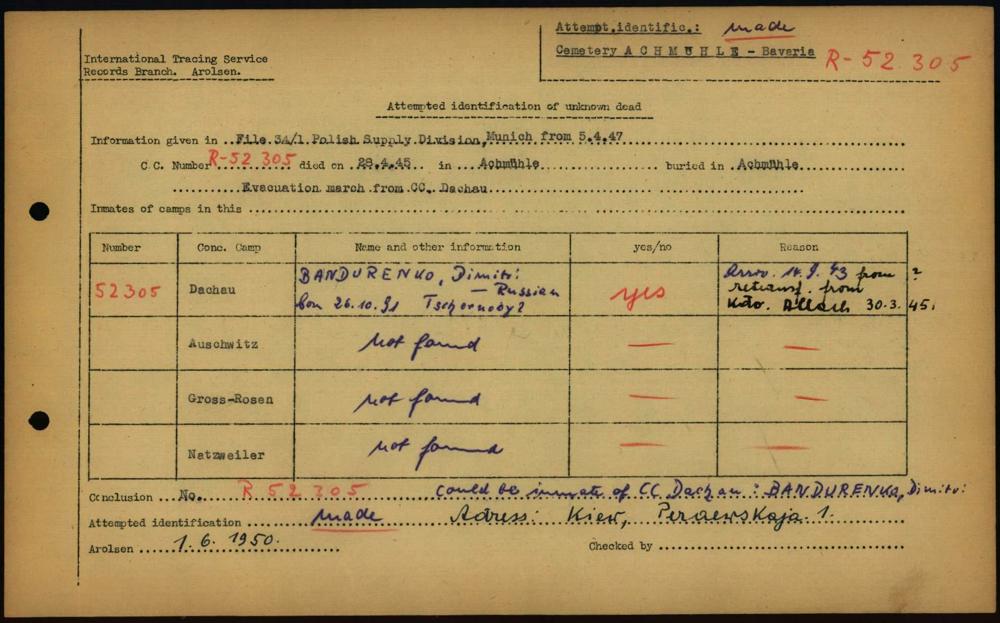 Attempt.identific.: made
Cemetery A C H M Ü H L E - Bavaria
R-52 305
International Tracing Service
Records Branch. Arolsen.
Attempted identification of unknown dead
Information given in ..File 3A/1 Polish Supply Division, Munich from 5.4.47
C.C. Number R-52 305 died on 28.4.45 in Achmühle buried in Achmühle
Evacuation march from CC. Dachau
Inmates of camps in this
Number Conc. Camp Name and other information yes/no Reason
52305 Dachau BANDURENKO, Dimitri — Russian
born 26.10.91 Tschernoby?
yes
Arrov. 14.9.43 from ?
retransf. from
Kdo. Allach 30.3.45.
Auschwitz not found — —
Gross-Rosen not found — —
Natzweiler not found — —
Conclusion No. R 52 305 could be inmate of CC Dachau: BANDURENKO, Dimitri
Attempted identification made Adress: Kiew, 1.
Arolsen 1.6.1950. Checked by